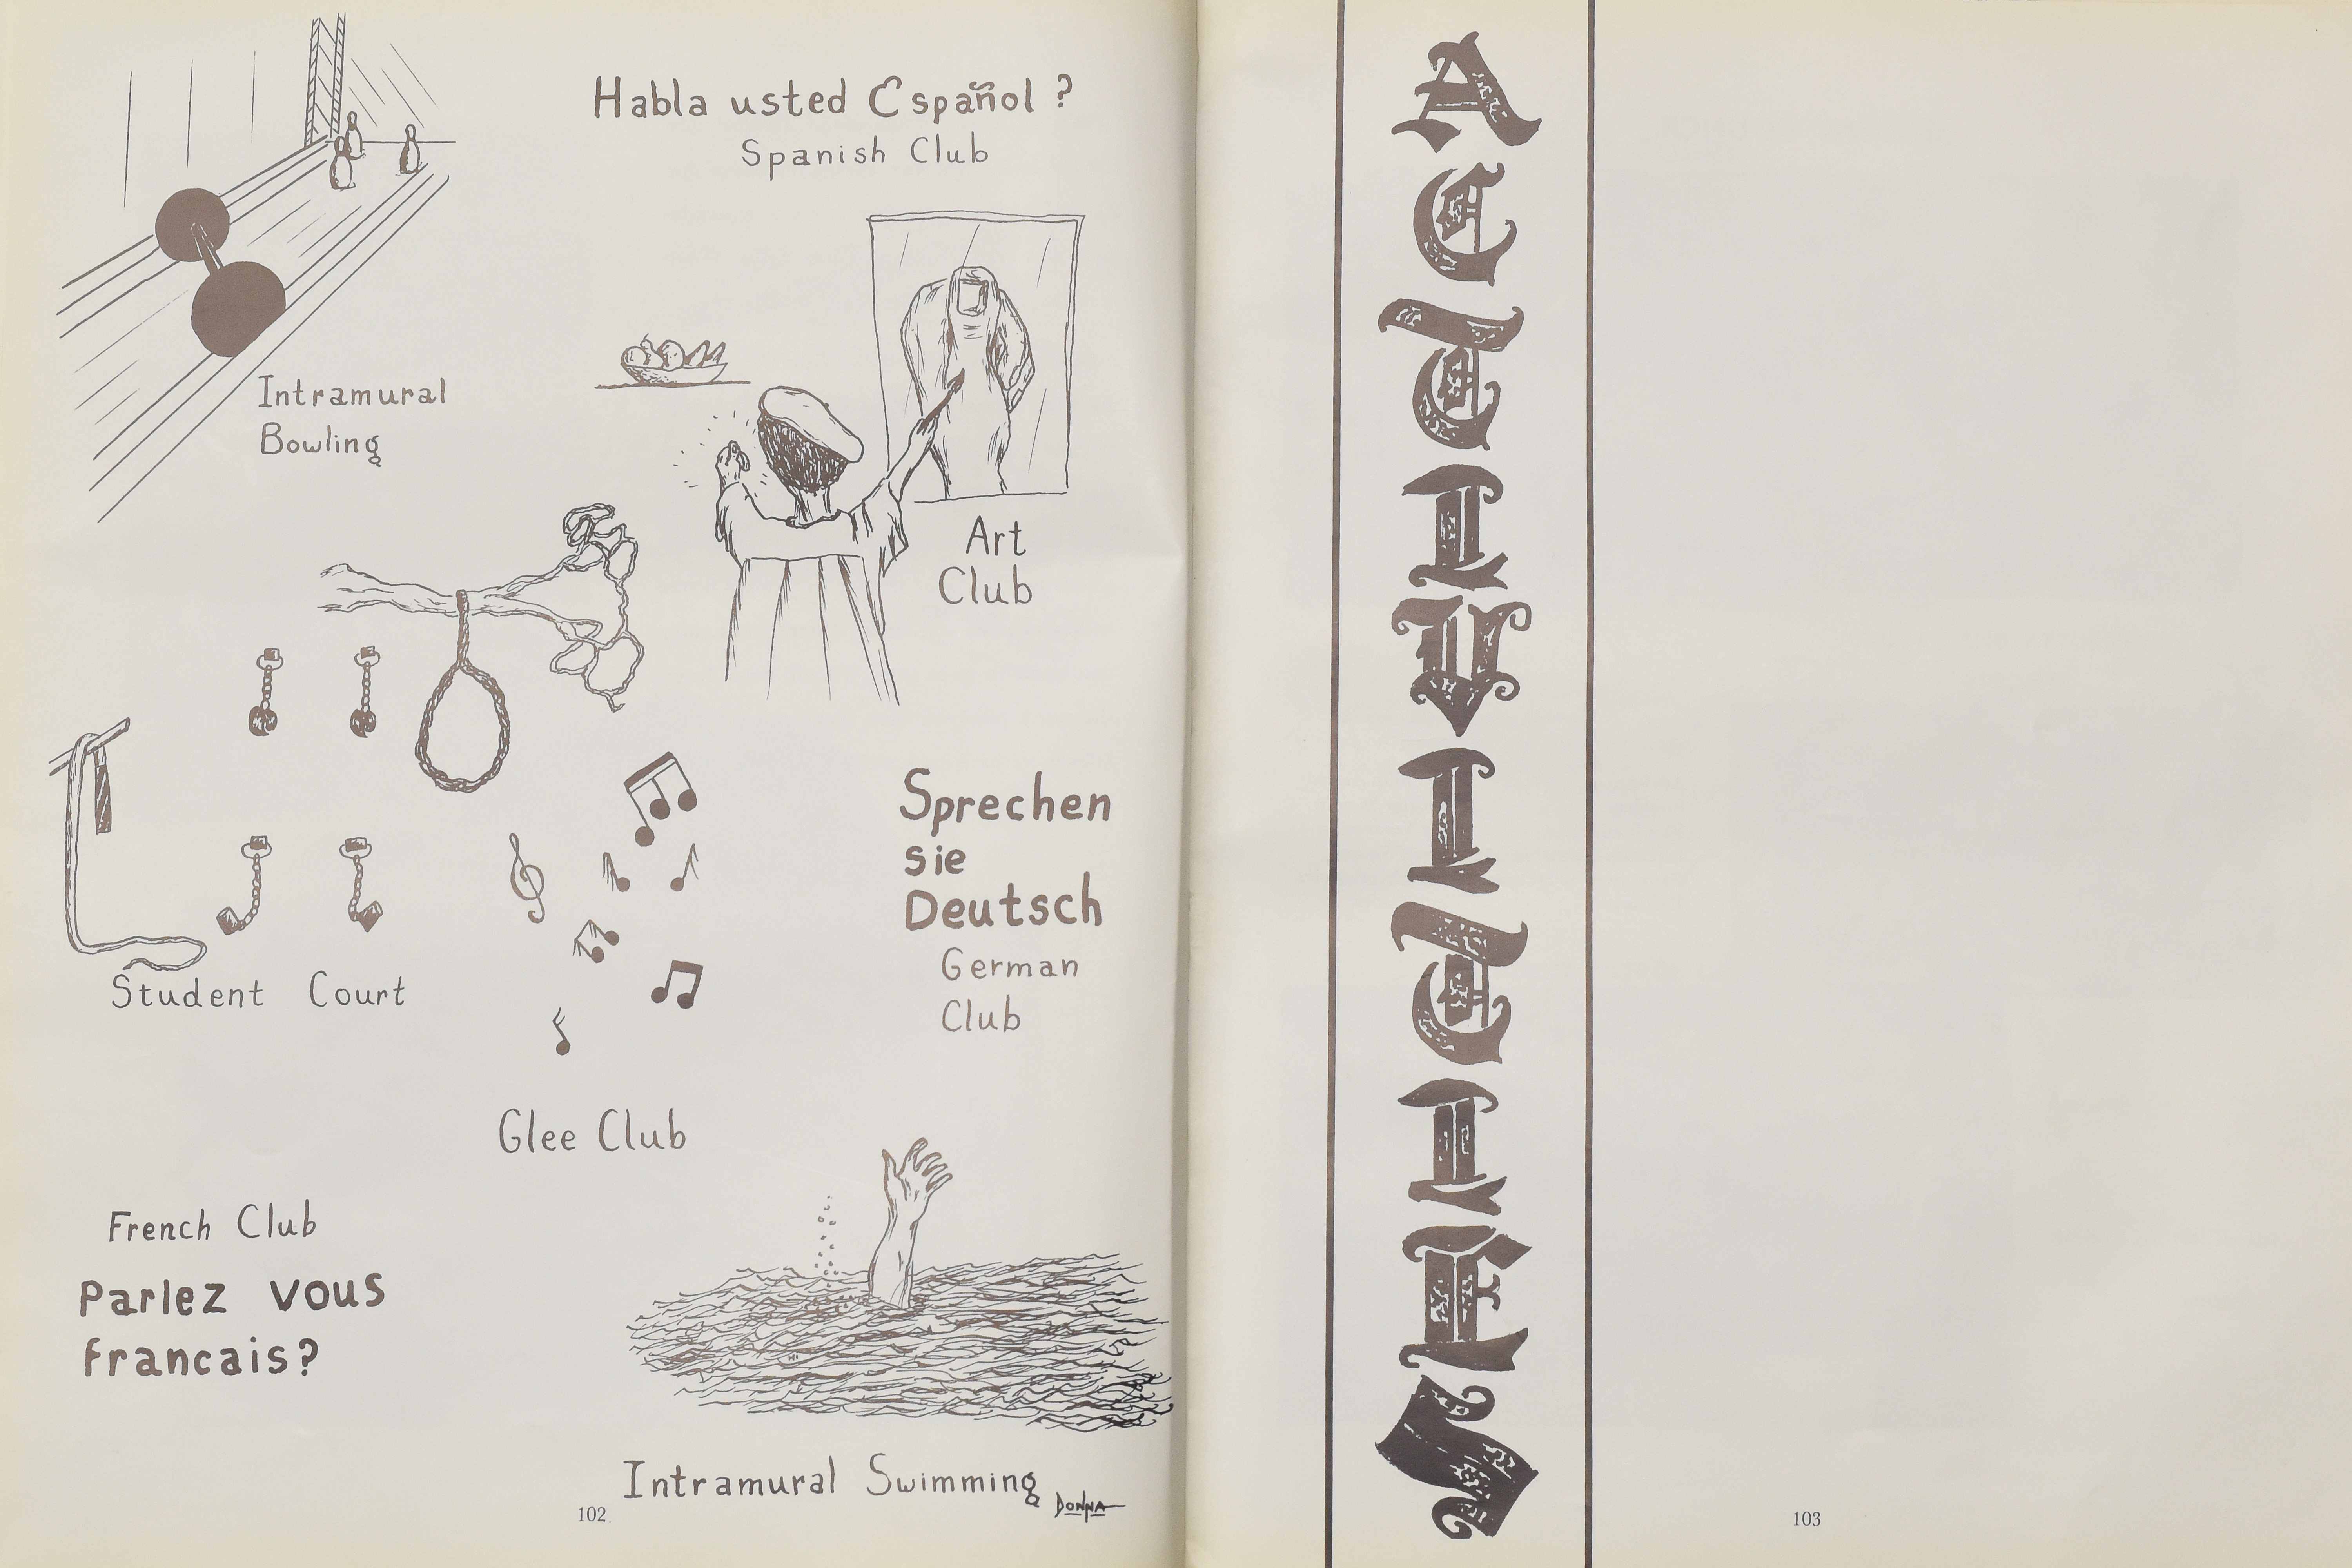 Habla usted Español ?
Spanish Club
Intramural
Bowling
Art
Club
Student Court
Sprechen
sie
Deutsch
German
Club
Glee Club
French Club
Parlez vous
francais?
Intramural Swimming
DONNA
102
ACTIVITIES
103